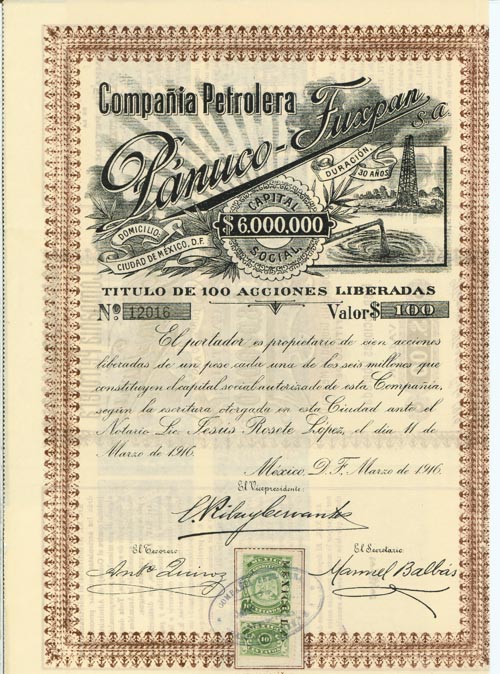 Compañia Petrolera
Pánuco-Tuxpan S.A.
DURACIÓN,
30 AÑOS
CAPITAL
$ 6.000,000
SOCIAL
DOMICILIO:
CIUDAD DE MÉXICO, D.F.
TITULO DE 100 ACCIONES LIBERADAS
Nº 12016 Valor $ 100
El portador es propietario de cien acciones
liberadas de un peso cada una de los seis millones que
constituyen el capital social autorizado de esta Compañía,
según la escritura otorgada en esta Ciudad ante el
Notario Lic. Jesús Rosete López, el día 11 de
Marzo de 1916.
México, D. F. Marzo de 1916.
El Vicepresidente:
El Tesorero: El Secretario
Manuel Balbás
MEXICO
10